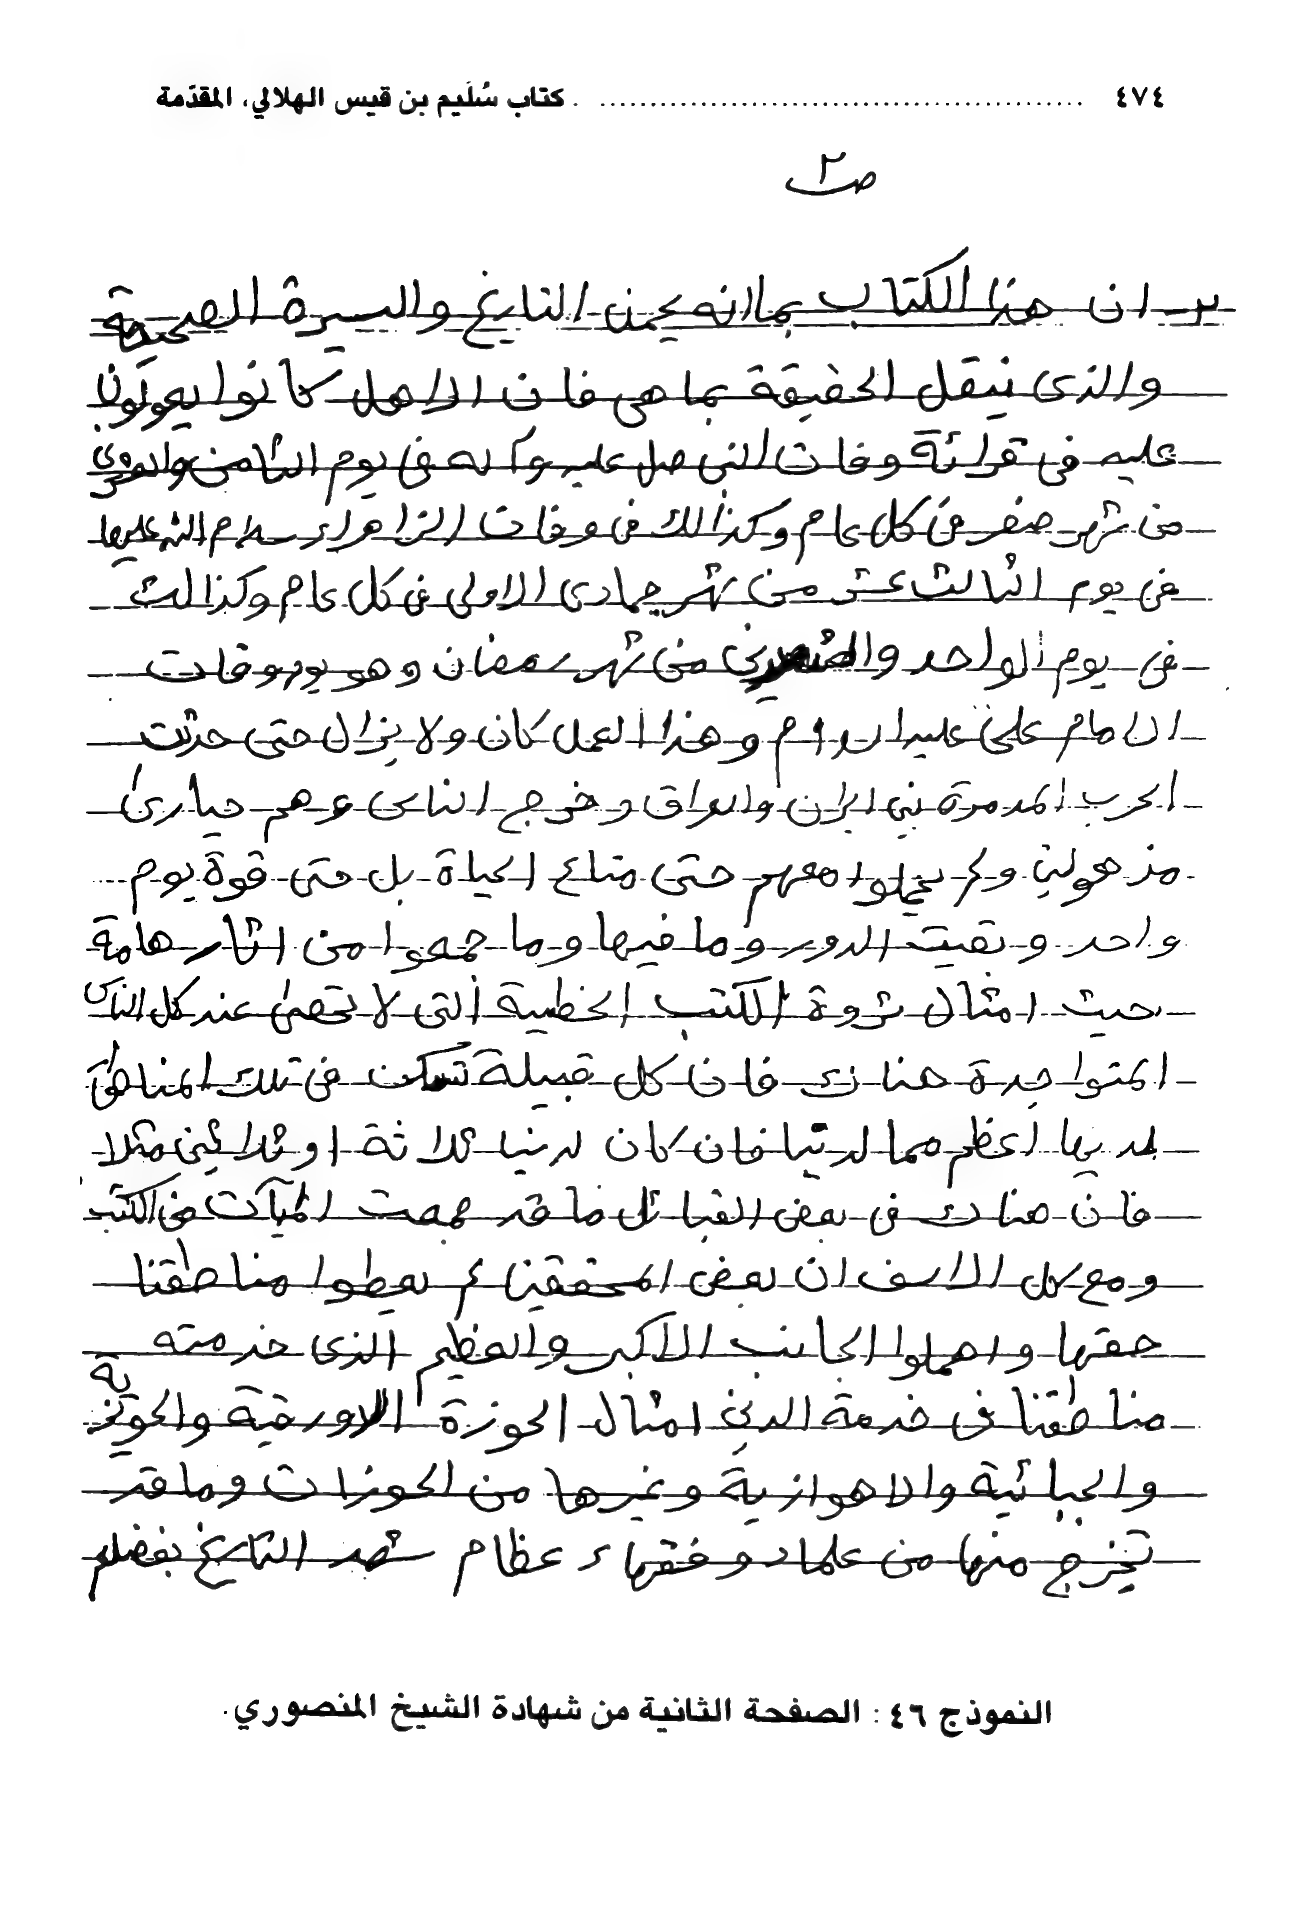 ٤٧٤ ........ كتاب سُلَيم بن قيس الهلالي، المقدّمة
ص٢
ان هذا الكتاب بما انه يحمل التاريخ والسيرة الصحيحة
والذى ينقل الحقيقة بما هي فان الاهل كانوا يعولون
عليه في قرائة وفات النبي صل عليه وآله في يوم الثامن والعشرين
من شهر صفر من كل عام وكذالك في وفات الزهراء سلام الله عليها
في يوم الثالث عشر من شهر جمادى الاولى في كل عام وكذالك
في يوم الواحد والعشرين من شهر رمضان وهو يوم وفات
الامام علي عليه السلام وهذا العمل كان ولا يزال حتى حدثت
الحرب المدمرة بين ايران والعراق وخرج الناس وهم حيارى
مذهولين ولم يحملوا معهم حتى متاع الحياة بل حتى قوة يوم
واحد وبقيت الدور وما فيها وما جمعوا من اثار هامة
حيث امثال ثروة الكتب الخطية التي لا تحصى عند كل الناس
المتواجدة هناك فان كل قبيلة تسكن في تلك المناطق
لديها أعظم مما لدينا فان كان لدينا ثلاثة او ثلاثين مثلا
فان هناك في بعض القبائل ما قد جمعت المآت من الكتب
ومع كل الاسف ان بعض المحققين لم يعطوا مناطقنا
حقها واهملوا الجانب الاكبر والعظيم الذى خدمته
مناطقنا في خدمة الدين امثال الحوزة الدورقية والحويزية
والجبائية والاهوازية وغيرها من الحوزات وما قد
تخرج منها من علماء وفقهاء عظام شهد التاريخ بفضلهم
النموذج ٤٦: الصفحة الثانية من شهادة الشيخ المنصوري.